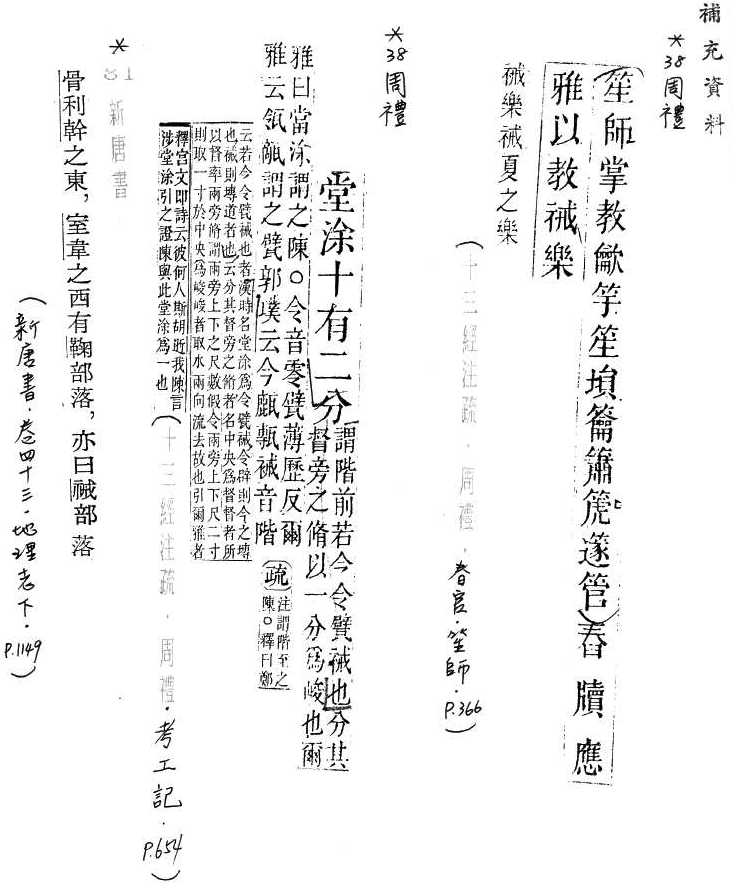 補充資料
*38周禮
笙師掌教龡竽笙塤籥簫篪篴管舂牘應
雅以教祴樂
祴樂祴夏之樂
(十三經注疏·周禮·春官·笙師·P.366)
*38周禮
堂涂十有二分
謂階前若今令甓祴也分其
督旁之脩以一分為峻也爾
雅曰當涂謂之陳○令音零甓薄歷反爾
雅云瓴甋謂之甓郭璞云今甗瓳祴音階
疏
注謂階至之
陳○釋曰鄭
云若今令甓祴也者漢時名堂涂為令甓祴令辟則今之塼
也祴則塼道者也云分其督旁之脩者名中央為督督者所
以督率兩旁脩謂兩旁上下之尺數假令兩旁上下尺二寸
則取一寸於中央為峻峻者取水兩向流去故也引爾雅者
釋宮文即詩云彼何人斯胡逝我陳言
涉堂涂引之證陳與此堂涂為一也
(十三經注疏·周禮·考工記·P.654)
*81新唐書
骨利幹之東,室韋之西有鞠部落,亦曰祴部落
(新唐書·卷四十三·地理志下·P.1149)